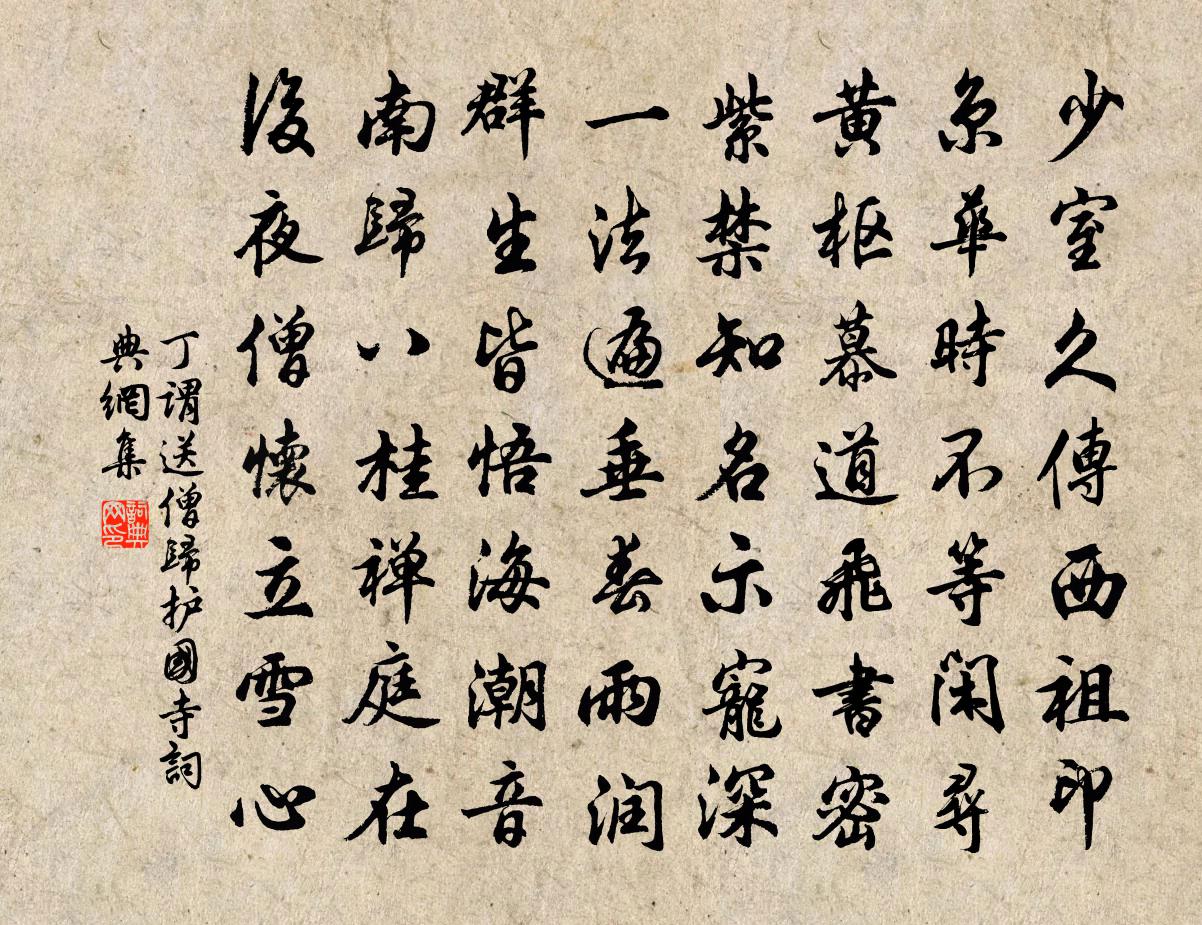 少室久傳西祖印
京華時不等閑尋
黄枢慕道飛書密
紫禁知名示寵深
一法遍垂春雨润
群生皆悟海潮音
南歸八桂禅庭在
後夜僧懷立雪心
丁謂送僧歸护國寺詞
典網集
詞典网印